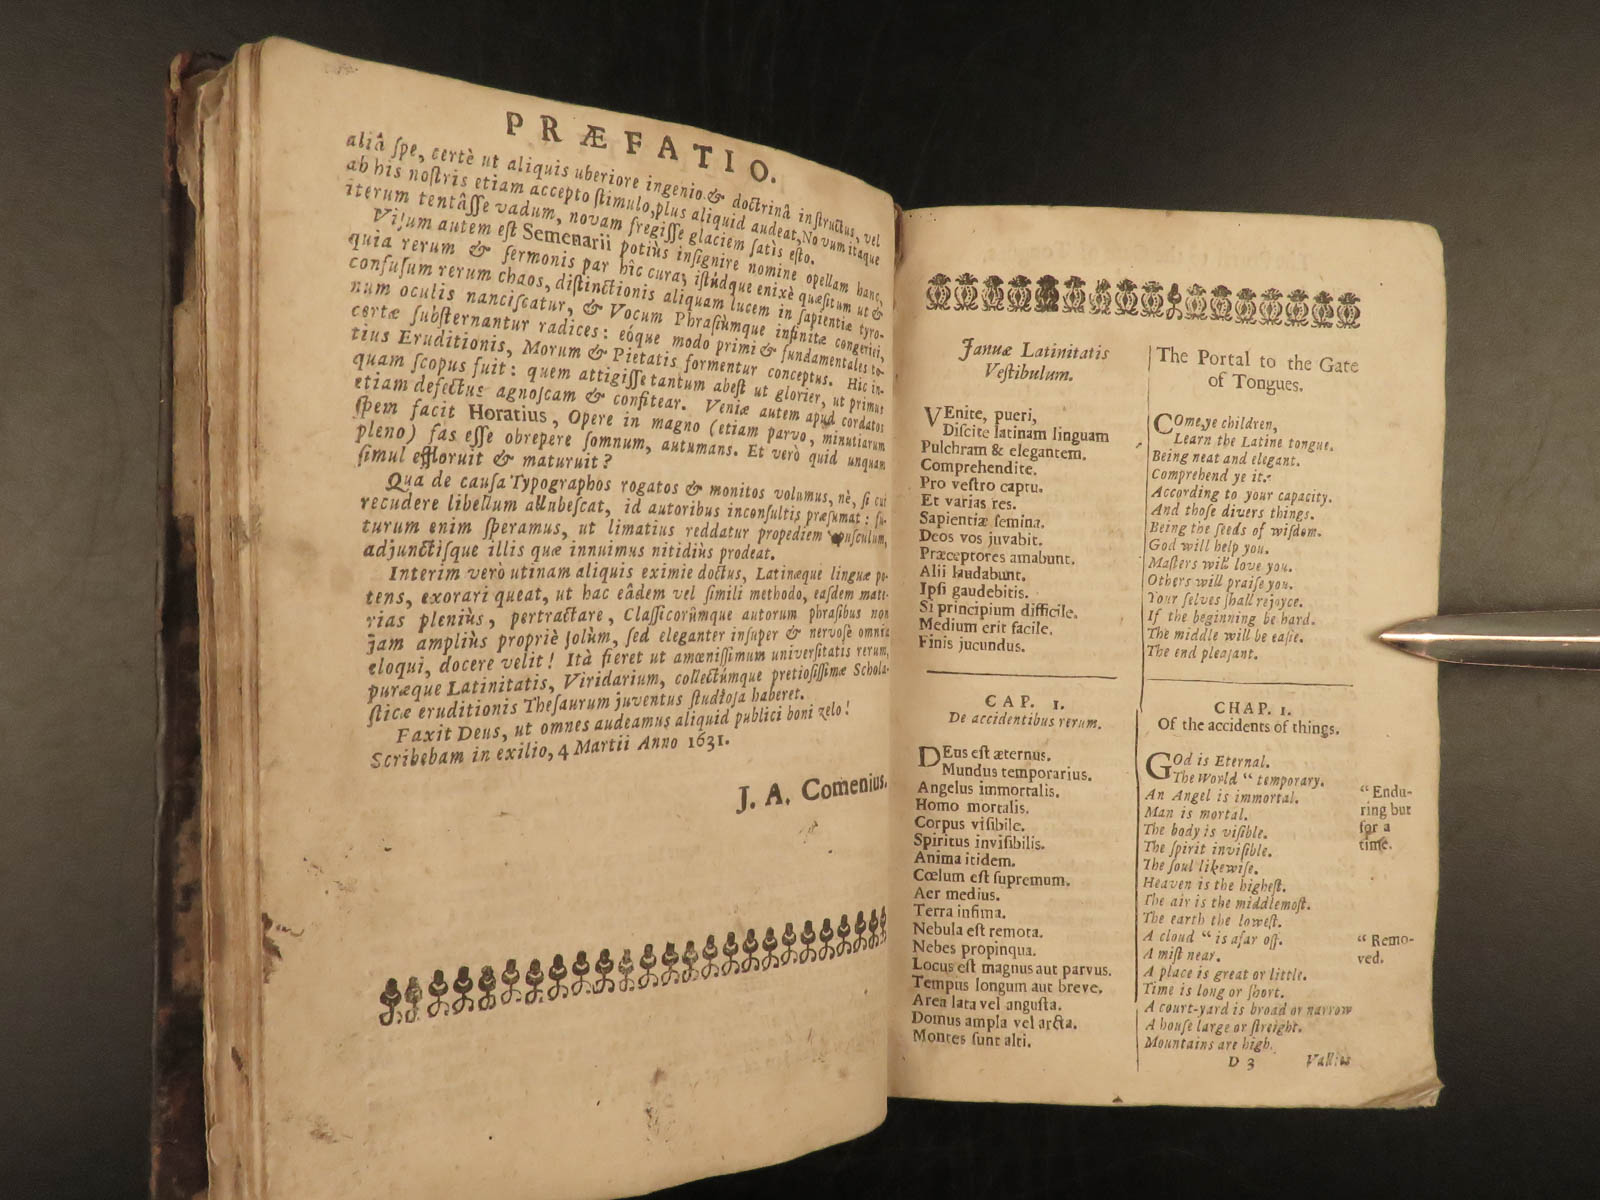 PRÆFATIO.
aliâ ſpe, certè ut aliquis uberiore ingenio & doctrinâ inſtructus, vel
ab his noſtris etiam accepto ſtimulo, plus aliquid audeat, Novum itaque
iterum tentâſſe vadum, novam fregiſſe glaciem ſatis eſto.
Viſum autem eſt Semenarii potiùs inſignire nomine opellam hanc,
quia rerum & ſermonis par hîc cura; iſtúdque enixè quæſitum ut &
confuſum rerum chaos, diſtinctionis aliquam lucem in ſapientiæ tyro-
num oculis nanciſcatur, & Vocum Phraſiúmque infinitæ congeriei,
certæ ſubſternantur radices: eóque modo primi & fundamentales to-
tius Eruditionis, Morum & Pietatis formentur conceptus. Hic in-
quam ſcopus fuit: quem attigiſſe tantum abeſt ut glorier, ut primus
etiam defectus agnoſcam & confitear. Veniæ autem apud cordatos
ſpem facit Horatius, Opere in magno (etiam parvo, minutiarum
pleno) fas eſſe obrepere ſomnum, autumans. Et verò quid unquam
ſimul effloruit & maturuit?
Qua de cauſa Typographos rogatos & monitos volumus, nè, ſi cui
recudere libellum allubeſcat, id autoribus inconſultis præſumat: fu-
turum enim ſperamus, ut limatius reddatur propediem opuſculum,
adjunctiſque illis quæ innuimus nitidiùs prodeat.
Interim verò utinam aliquis eximie doctus, Latinæque linguæ po-
tens, exorari queat, ut hac eâdem vel ſimili methodo, eaſdem mate-
rias pleniùs, pertractare, Claſſicorûmque autorum phraſibus non
jam ampliùs propriè ſolùm, ſed eleganter inſuper & nervoſè omnia
eloqui, docere velit! Ità fieret ut amœniſſimum univerſitatis rerum,
puræque Latinitatis, Viridarium, collectúmque pretioſiſſimæ Schola-
ſticæ eruditionis Theſaurum juventus ſtudioſa haberet.
Faxit Deus, ut omnes audeamus aliquid publici boni zelo!
Scribebam in exilio, 4 Martii Anno 1631.
J. A. Comenius.
Januæ Latinitatis
Veſtibulum.
VEnite, pueri,
Diſcite latinam linguam
Pulchram & elegantem.
Comprehendite.
Pro veſtro captu.
Et varias res.
Sapientiæ ſemina.
Deos vos juvabit.
Præceptores amabunt.
Alii laudabunt.
Ipſi gaudebitis.
Si principium difficile.
Medium erit facile.
Finis jucundus.
CAP. I.
De accidentibus rerum.
DEus eſt æternus.
Mundus temporarius.
Angelus immortalis.
Homo mortalis.
Corpus viſibile.
Spiritus inviſibilis.
Anima itidem.
Cœlum eſt ſupremum.
Aer medius.
Terra infima.
Nebula eſt remota.
Nebes propinqua.
Locus eſt magnus aut parvus.
Tempus longum aut breve.
Area lata vel anguſta.
Domus ampla vel arcta.
Montes ſunt alti.
The Portal to the Gate
of Tongues.
COme, ye children,
Learn the Latine tongue.
Being neat and elegant.
Comprehend ye it.
According to your capacity.
And thoſe divers things.
Being the ſeeds of wiſdom.
God will help you.
Maſters will love you.
Others will praiſe you.
Your ſelves ſhall rejoyce.
If the beginning be hard.
The middle will be eaſie.
The end pleaſant.
CHAP. I.
Of the accidents of things.
GOd is Eternal.
The World “ temporary.
An Angel is immortal.
Man is mortal.
The body is viſible.
The ſpirit inviſible.
The ſoul likewiſe.
Heaven is the higheſt.
The air is the middlemoſt.
The earth the loweſt.
A cloud “ is afar off.
A miſt near.
A place is great or little.
Time is long or ſhort.
A court-yard is broad or narrow
A houſe large or ſtreight.
Mountains are high.
“ Endu-
ring but
for a
time.
“ Remo-
ved.
D 3
Vallies